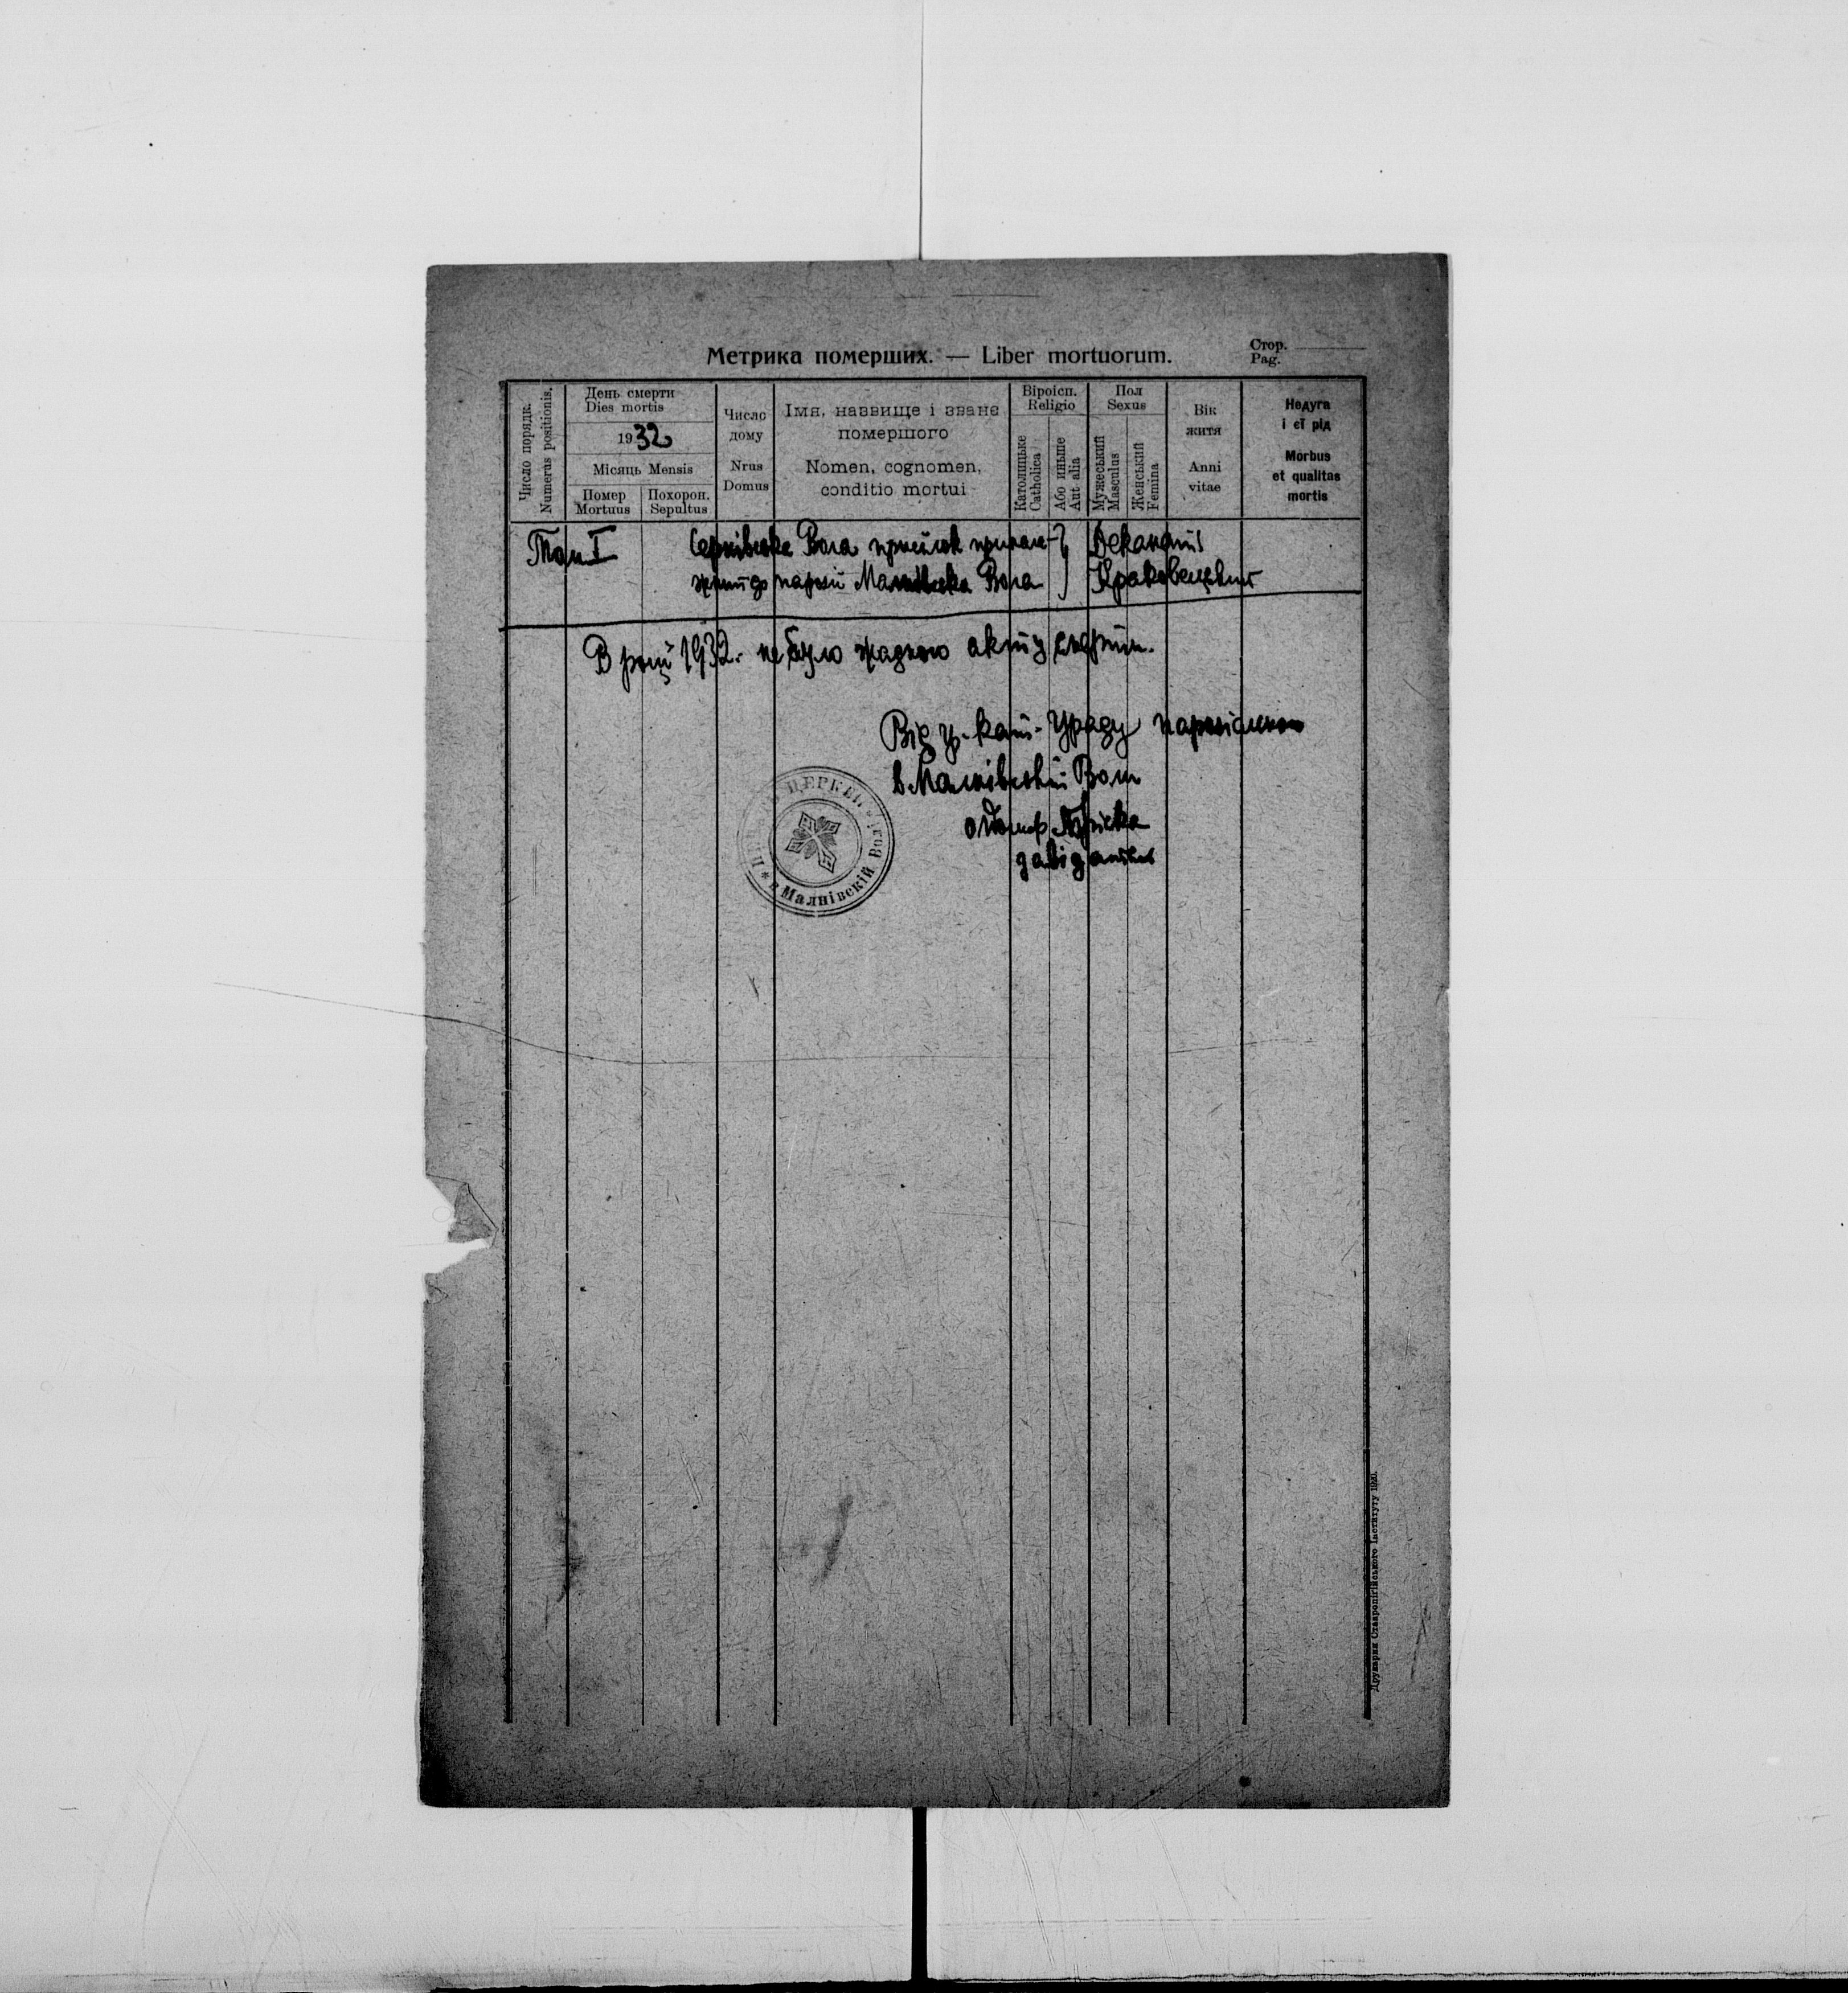 Метрика померших. — Liber mortuorum.
Стор.
Pag.
Число порядк.
Numerus positionis.
День смерти
Dies mortis
1932
Місяць Mensis
Помер
Mortuus
Похорон.
Sepultus
Число
дому
Nrus
Domus
Імя, назвище і званє
помершого
Nomen, cognomen,
conditio mortui
Віроісп.
Religio
Католицьке
Catholica
Або иньше
Aut alia
Пол
Sexus
Мужеський
Masculus
Женський
Femina
Вік
житя
Anni
vitae
Недуга
і єї рід
Morbus
et qualitas
mortis
Том I
Вола присілок принале-
жний до парохії Малнівска Вола
Деканат
Краковецький
В році 1932. не було жадного акту смерти.
Від гр.-кат. Уряду парохіяльного
в Малнівській Воли
завідатель
ЦЕРКВИ
* в Малнівскій Воли
Друкарня Ставропігійського Інституту 1920.